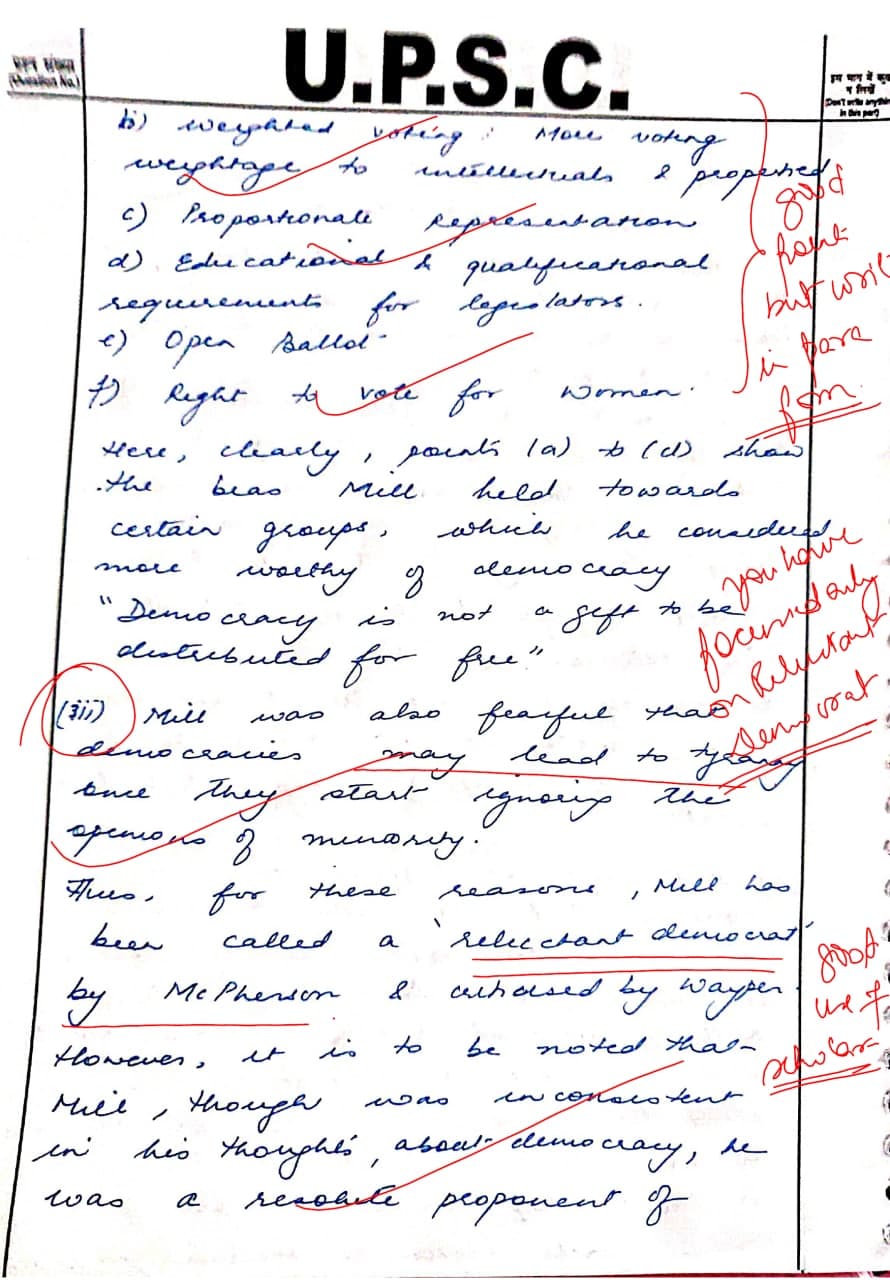 U.P.S.C.
प्रश्न संख्या
(Question No.)
इस भाग में कुछ
न लिखें
(Don't write anything
in this part)
b) weighted voting : More voting
weightage to intellectuals & propertied
c) Proportionate Representation
d) Educational & qualificational
requirements for legislators.
e) Open Ballot
f) Right to vote for women.
good
point
but write
in para
form
Here, clearly, points (a) to (d) show
the bias Mill held towards
certain groups, which he considered
more worthy of democracy
"Democracy is not a gift to be
distributed for free"
you have
focused only
on Reluctant
Democrat
(iii) Mill was also fearful that
democracies may lead to tyranny
once they start ignoring the
opinions of minority.
Thus, for these reasons, Mill has
been called a 'reluctant democrat'
by McPherson & criticised by Wayper.
good
use of
scholar
However, it is to be noted that
Mill, though was inconsistent
in his thoughts about democracy, he
was a resolute proponent of